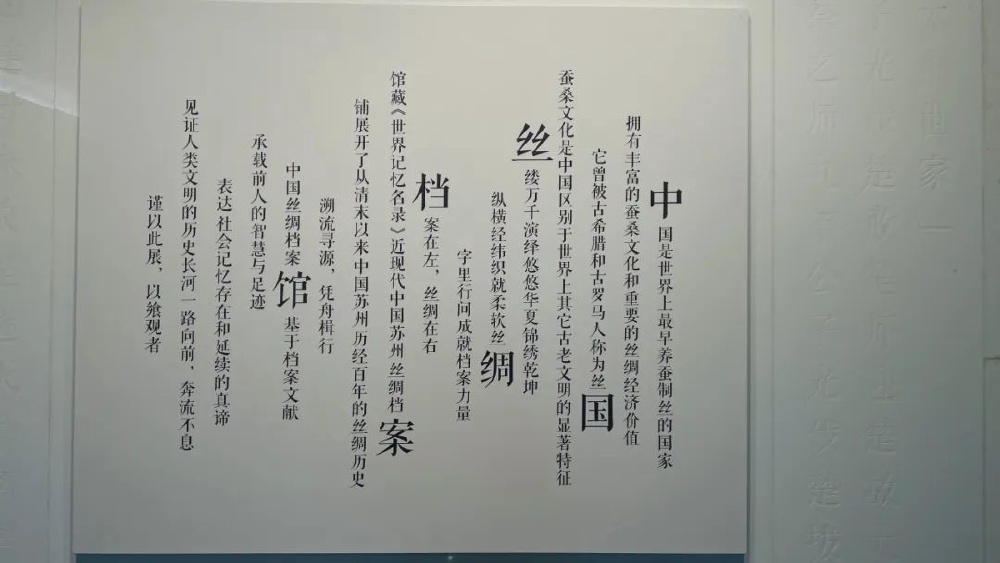 中国是世界上最早养蚕制丝的国家
拥有丰富的蚕桑文化和重要的丝绸经济价值
它曾被古希腊和古罗马人称为丝国
蚕桑文化是中国区别于世界上其它古老文明的显著特征
丝缕万千演绎悠悠华夏锦绣乾坤
纵横经纬织就柔软丝绸
字里行间成就档案力量
档案在左，丝绸在右
馆藏《世界记忆名录》近现代中国苏州丝绸档案
铺展开了从清末以来中国苏州历经百年的丝绸历史
溯流寻源，凭舟楫行
中国丝绸档案馆基于档案文献
承载前人的智慧与足迹
表达社会记忆存在和延续的真谛
见证人类文明的历史长河一路向前，奔流不息
谨以此展，以飨观者